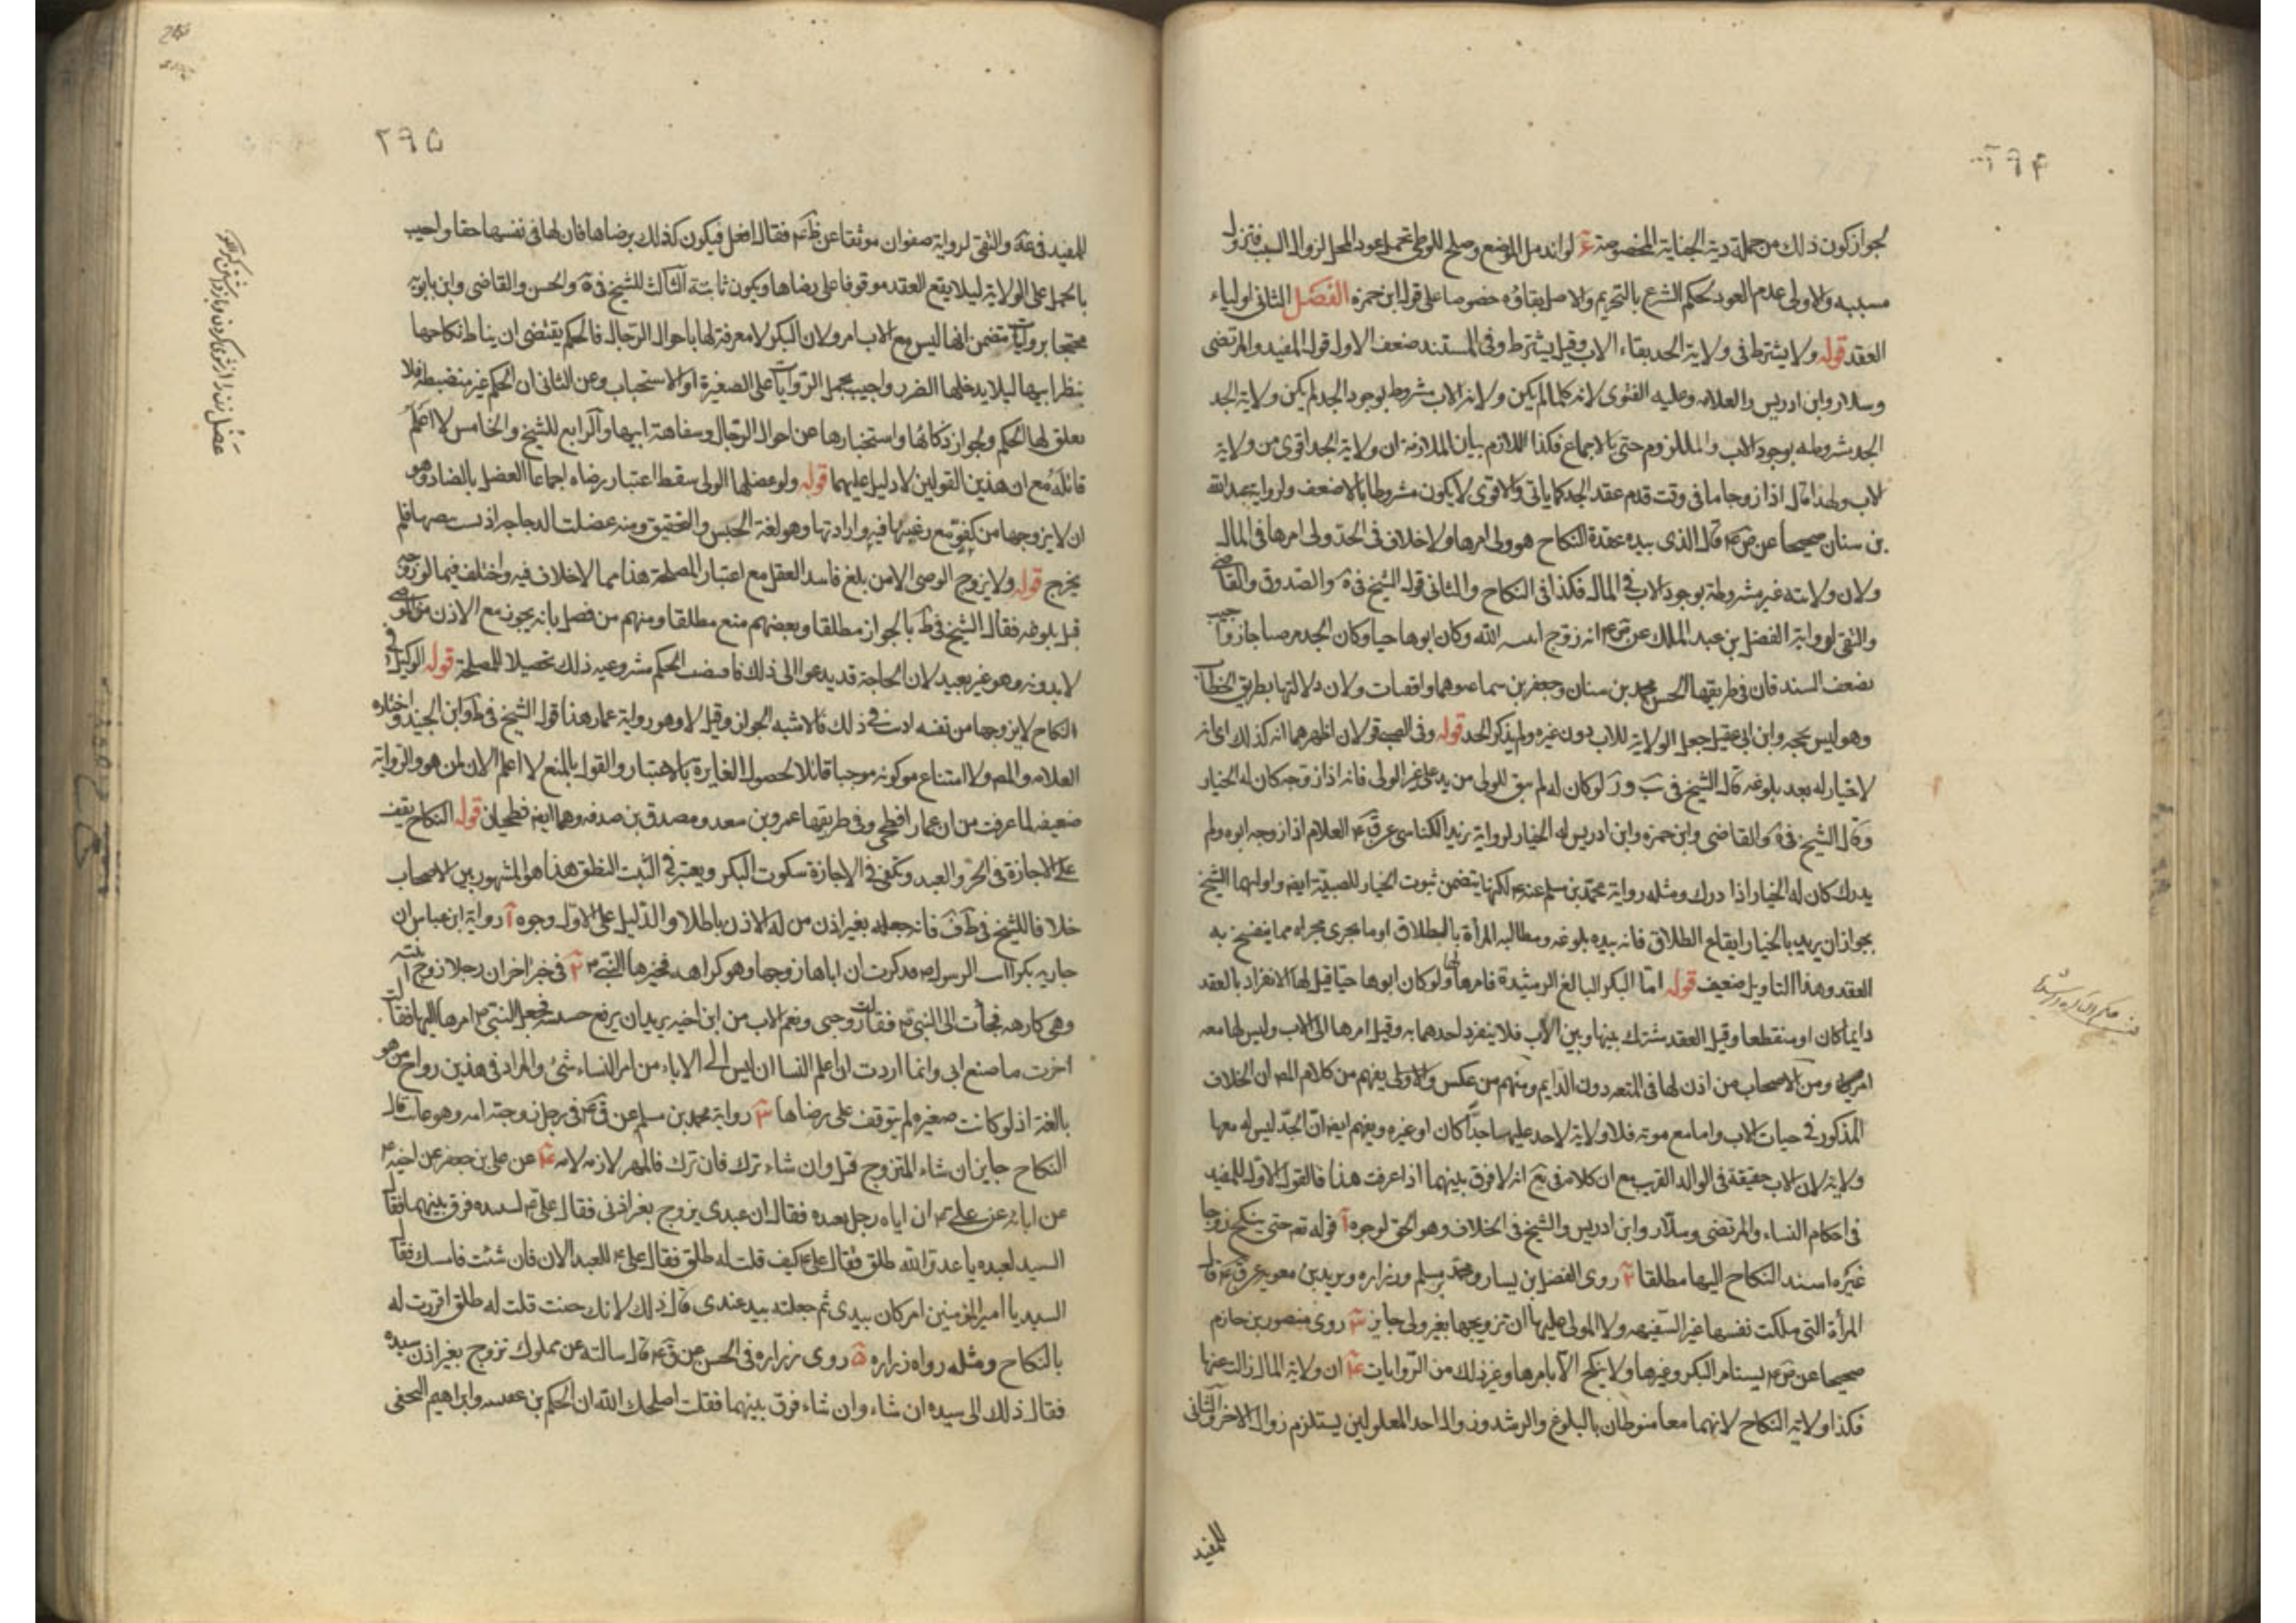 ٢٩۴
لجواز كون ذلك من جملة دية الجناية المخصوصة ۶ لو اندمل الموضع وصلح للوطى تحمل عود الحل لزوال السبب فيزول
مسببه والاولى عدم العود لحكم الشرع بالتحريم والاصل بقاؤه خصوصا على قول ابن حمزه الفصل الثانى اولياء
العقد قوله ولا يشترط فى ولاية الجد بقاء الاب وقيل يشترط وفى المستند ضعف الاول قول المفيد والمرتضى
وسلار وابن ادريس والعلامه وعليه الفتوى لانه كلما لم يكن ولاية الاب مشروطه بوجود الجد لم يكن ولاية الجد
الجد مشروطه بوجود الاب والملزوم حق بالاجماع فكذا اللازم بيان الملازمة ان ولاية الجد اقوى من ولاية
الاب ولهذا قال اذا زوجاها فى وقت قدم عقد الجد كما ياتى والاقوى لا يكون مشروطا بالاضعف ولرواية عبد الله
بن سنان صحيحا عن ص ع قال الذى بيده عقدة النكاح هو ولى امرها ولا خلاف فى الجد ولى امرها فى المال
ولان ولايته غير مشروطة بوجود الاب فى المال فكذا فى النكاح والثانى قول الشيخ فى ية والصدوق والقاضى
والتقى لرواية الفضل بن عبد الملك عن ص ع انه زوج ابنة ابنه وكان ابوها حيا وكان الجد مرضيا جاز واجيب
بضعف السند فان فى طريقها الحسن محمد بن سنان وجعفر بن سماعه وهما واقفيان ولان دلالتها بطريق الخطاب
وهو ليس بحجه وابن ابى عقيل جعل الولاية للاب دون غيره ولم يذكر الجد قوله وفى الصبى قولان اظهرهما انه كذلك اى انه
لا خيار له بعد بلوغه قال الشيخ فى ب و ر لو كان له لم يبق للولى من يد على غير الولى فانه اذا زوجه كان له الخيار
وقال الشيخ فى ية والقاضى وابن حمزه وابن ادريس له الخيار لرواية يزيد الكناسى عن ق ع الغلام اذا زوجه ابوه ولم
يدرك كان له الخيار اذا درك ومثله رواية محمد بن مسلم عنه ع لكنها يتضمن ثبوت الخيار للصبية ايضا واولهما الشيخ
بجواز ان يريد بالخيار ايقاع الطلاق فانه بيده بلوغه ومطالبه المرأة بالطلاق او ما يجرى مجراه مما ينفسخ به
العقد وهذا التاويل ضعيف قوله اما البكر البالغ الرشيدة فامرها لها ولو كان ابوها حيا قيل لها الانفراد بالعقد
دايما كان او منقطعا وقيل العقد مشترك بينها وبين الاب فلا ينفرد احدهما به وقيل امرها الى الاب وليس لها معه
امر ومن الاصحاب من اذن لها فى المتعه دون الدايم ومنهم من عكس والاولى يفهم من كلام المص ان الخلاف
المذكور فى حيات الاب واما مع موته فلا ولاية لاحد عليها جدا كان او غيره ويفهم ايضا ان الجد ليس له معها
ولاية لان الاب حقيقة فى الوالد القريب مع ان كلامه فى يع انه لا فرق بينهما اذا عرفت هذا فالقول الاول للمفيد
فى احكام النساء والمرتضى وسلار وابن ادريس والشيخ فى الخلاف وهو الحق لوجوه آ قوله تع حتى ينكح زوجا
غيره اسند النكاح اليها مطلقا ٢ روى الفضل بن يسار ومحمد بن مسلم وزراره وبريد بن معويه عن ق ع قال
المرأة التى ملكت نفسها غير السفيهه ولا المولى عليها ان تزويجها بغير ولى جايز ٣ روى منصور بن حازم
صحيحا عن ص ع يستامر البكر وغيرها ولا ينكح الا بامرها وغير ذلك من الروايات ۴ ان ولاية المال زالت عنها
فكذا ولاية النكاح لانهما معا منوطان بالبلوغ والرشد وزوال احد المعلولين يستلزم زوال الاخر والثانى
للمفيد
٢٩۵
للمفيد فى عة والتقى لرواية صفوان موثقا عن ظ ع فقال افعل فيكون كذلك برضاها فان لها فى نفسها حقا واجيب
بالحمل على الولاية ليلا يقع العقد موقوفا على رضاها ويكون ثابتة الثالث للشيخ فى ية والحسن والقاضى وابن بابويه
محتجا بروايات تتضمن انها ليس مع الاب امر ولان البكر لا معرفة لها باحوال الرجال فالحكم يقتضى ان يناط نكاحها
بنظر ابيها ليلا يدخلها الضرر واجيب بحمل الروايات على الصغيرة او الاستحباب وعن الثانى ان الحكم غير منضبطه فلا
تعلق لها الحكم ولجواز ذكائها واستخبارها عن احوال الرجال وسفاهة ابيها والرابع للشيخ والخامس لا اعلم
قائله مع ان هذين القولين لا دليل عليهما قوله ولو عضلها الولى سقط اعتبار رضاه اجماعا العضل بالضاد وهو
ان لا يزوجها من كفو مع رغبتها فيه وارادتها وهو لغة الحبس والتضييق ومنه عضلت الدجاجه اذ نشب بيضها فلم
يخرج قوله ولا يزوج الوصى الا من بلغ فاسد العقل مع اعتبار المصلحة هذا مما لا خلاف فيه واختلف فيما لو زوج
قبل بلوغه فقال الشيخ فى ط بالجواز مطلقا وبعضهم منع مطلقا ومنهم من فصل بانه يجوز مع الاذن من الموصى
لا بدونه وهو غير بعيد لان الحاجة قد يدعو الى ذلك فاقتضت الحكم مشروعيه ذلك تحصيلا للمصلحة قوله الوكيل فى
النكاح لا يزوجها من نفسه اذنت فى ذلك فالاشبه الجواز وقيل لا وهو رواية عمار هذا قول الشيخ فى ط وابن الجنيد واختاره
العلامه والمص ولا امتناع من كونه موجبا قابلا لحصول المغايرة بالاعتبار والقول بالمنع لا اعلم الان لمن هو والرواية
ضعيفه لما عرفت من ان عمار افطحى وفى طريقها عمرو بن سعد ومصدق بن صدقه وهما ايضا فطحيان قوله النكاح يقف
على الاجازة فى الحر والعبد ويكفى فى الاجازة سكوت البكر ويعتبر فى الثيب النطق هذا هو المشهور بين الاصحاب
خلافا للشيخ فى ط ف فانه جعله بغير اذن من له الاذن باطلا والدليل على الاول وجوه آ رواية ابن عباس ان
جاريه بكرا اتت الرسول ص فذكرت ان اباها زوجها وهو كراهه فخيرها النبى ص ٢ فى خبر اخر ان رجلا زوج ابنته
وهى كارهه فجأت الى النبى ص فقالت زوجنى ونعم الاب من ابن اخيه يريد ان يرفع خسيسته فجعل النبى ص امرها اليها فقالت
اخزت ما صنع ابى وانما اردت ان اعلم النسا ان ليس الى الاباء من امر النساء شئ والمراد فى هذين رواج من هو
بالغة اذ لو كانت صغيره لم يتوقف على رضاها ٣ رواية محمد بن مسلم عن ق ع فى رجل زوجته امه وهو غائب قال
النكاح جايز ان شاء المتزوج قبل وان شاء ترك فان ترك فالمهر لازم لامه ۴ عن على بن جعفر عن اخيه ع
عن ابائه عن على ع ان اياه رجل بعبده فقال ان عبدى يزوج بغير اذنى فقال على ع لسيده فرق بينهما فقال
السيد لعبده يا عدو الله طلق فقال على ع كيف قلت له طلق فقال على ع للعبد الان فان شئت فامسك فقال
السيد يا امير المؤمنين امر كان بيدى ثم جعلته بيد عندى قال ذلك لانك حنث قلت له طلق اقررت له
بالنكاح ومثله رواه زراره ۵ روى زراره فى الحسن عن ق ع قال سالته عن مملوك تزوج بغير اذن سيده
فقال ذلك الى سيده ان شاء وان شاء فرق بينهما فقلت اصلحك الله ان الحكم بن عتيبه وابراهيم النخعى